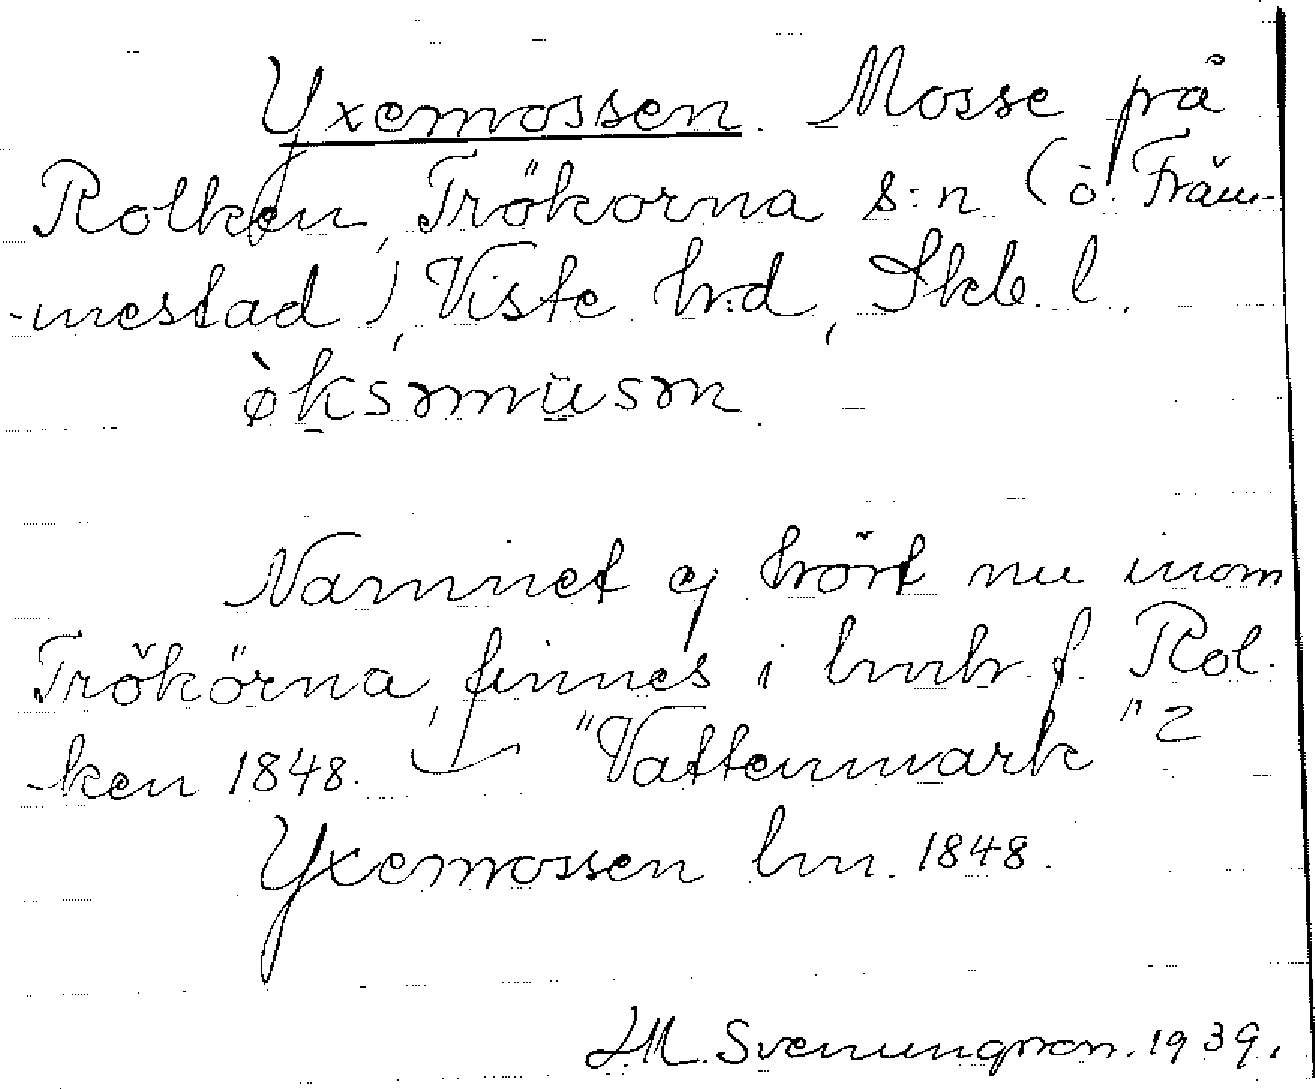 Yxemossen. Mosse på
Rolken, Trökorna s:n (ö. Främ-
-mestad), Viste h:d, Skb. l.
ø̀ksəmusən.
Namnet ej hört nu inom
Trökörna, finnes i lmh. f. Rol-
-ken 1848. "Vattenmark" 2
Yxemossen lm. 1848.
J.M. Svenungsson. 1939.